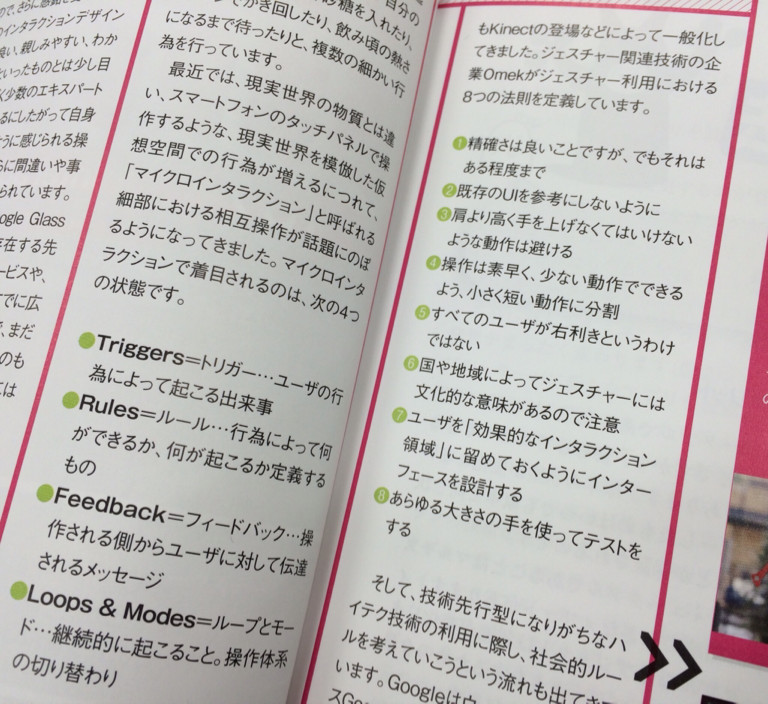 インタラクションデザイン
良い、親しみやすい、わか
いったものとは少し目
少数のエキスパート
るにしたがって自身
うに感じられる操
らに間違いや事
られています。
ogle Glass
存在する先
ービスや、
でに広
、まだ
のも
ては
でかき回したり、飲み頃の熱さ
になるまで待ったりと、複数の細かい行
為を行っています。
最近では、現実世界の物質とは違
い、スマートフォンのタッチパネルで操
作するような、現実世界を模倣した仮
想空間での行為が増えるにつれて、
「マイクロインタラクション」と呼ばれる
細部における相互操作が話題にのぼ
るようになってきました。マイクロインタ
ラクションで着目されるのは、次の4つ
の状態です。
●Triggers=トリガー…ユーザの行
為によって起こる出来事
●Rules=ルール…行為によって何
ができるか、何が起こるか定義する
もの
●Feedback=フィードバック…操
作される側からユーザに対して伝達
されるメッセージ
●Loops & Modes=ループとモー
ド…継続的に起こること。操作体系
の切り替わり
もKinectの登場などによって一般化し
てきました。ジェスチャー関連技術の企
業Omekがジェスチャー利用における
8つの法則を定義しています。
❶精確さは良いことですが、でもそれは
ある程度まで
❷既存のUIを参考にしないように
❸肩より高く手を上げなくてはいけない
ような動作は避ける
❹操作は素早く、少ない動作でできる
よう、小さく短い動作に分割
❺すべてのユーザが右利きというわけ
ではない
❻国や地域によってジェスチャーには
文化的な意味があるので注意
❼ユーザを「効果的なインタラクション
領域」に留めておくようにインター
フェースを設計する
❽あらゆる大きさの手を使ってテストを
する
そして、技術先行型になりがちなハ
イテク技術の利用に際し、社会的ルー
ルを考えていこうという流れも出てき
います。Googleは